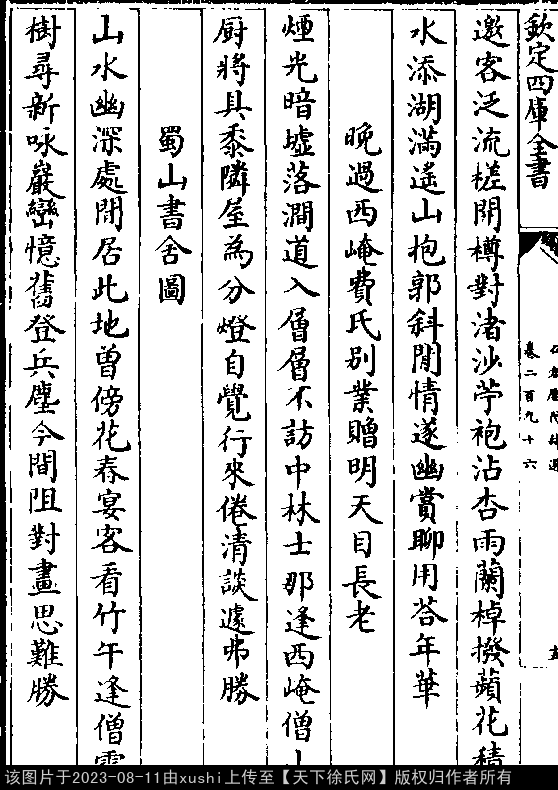 欽定四庫全書
卷二百九十六
邀客泛流槎開樽對渚沙苧袍沾杏雨蘭棹撥蘋花積
水添湖滿遙山抱郭斜閒情遂幽賞聊用荅年華
晚過西崦費氏别業贈明天目長老
煙光暗墟落澗道入層層不訪中林士那逢西崦僧山
厨將具黍隣屋為分燈自覺行來倦清談遽弗勝
蜀山書舍圖
山水幽深處閒居此地曽傍花春宴客看竹午逢僧雲
樹尋新咏巖巒憶舊登兵塵今間阻對畫思難勝
该图片于2023-08-11由xushi上传至【天下徐氏网】版权归作者所有